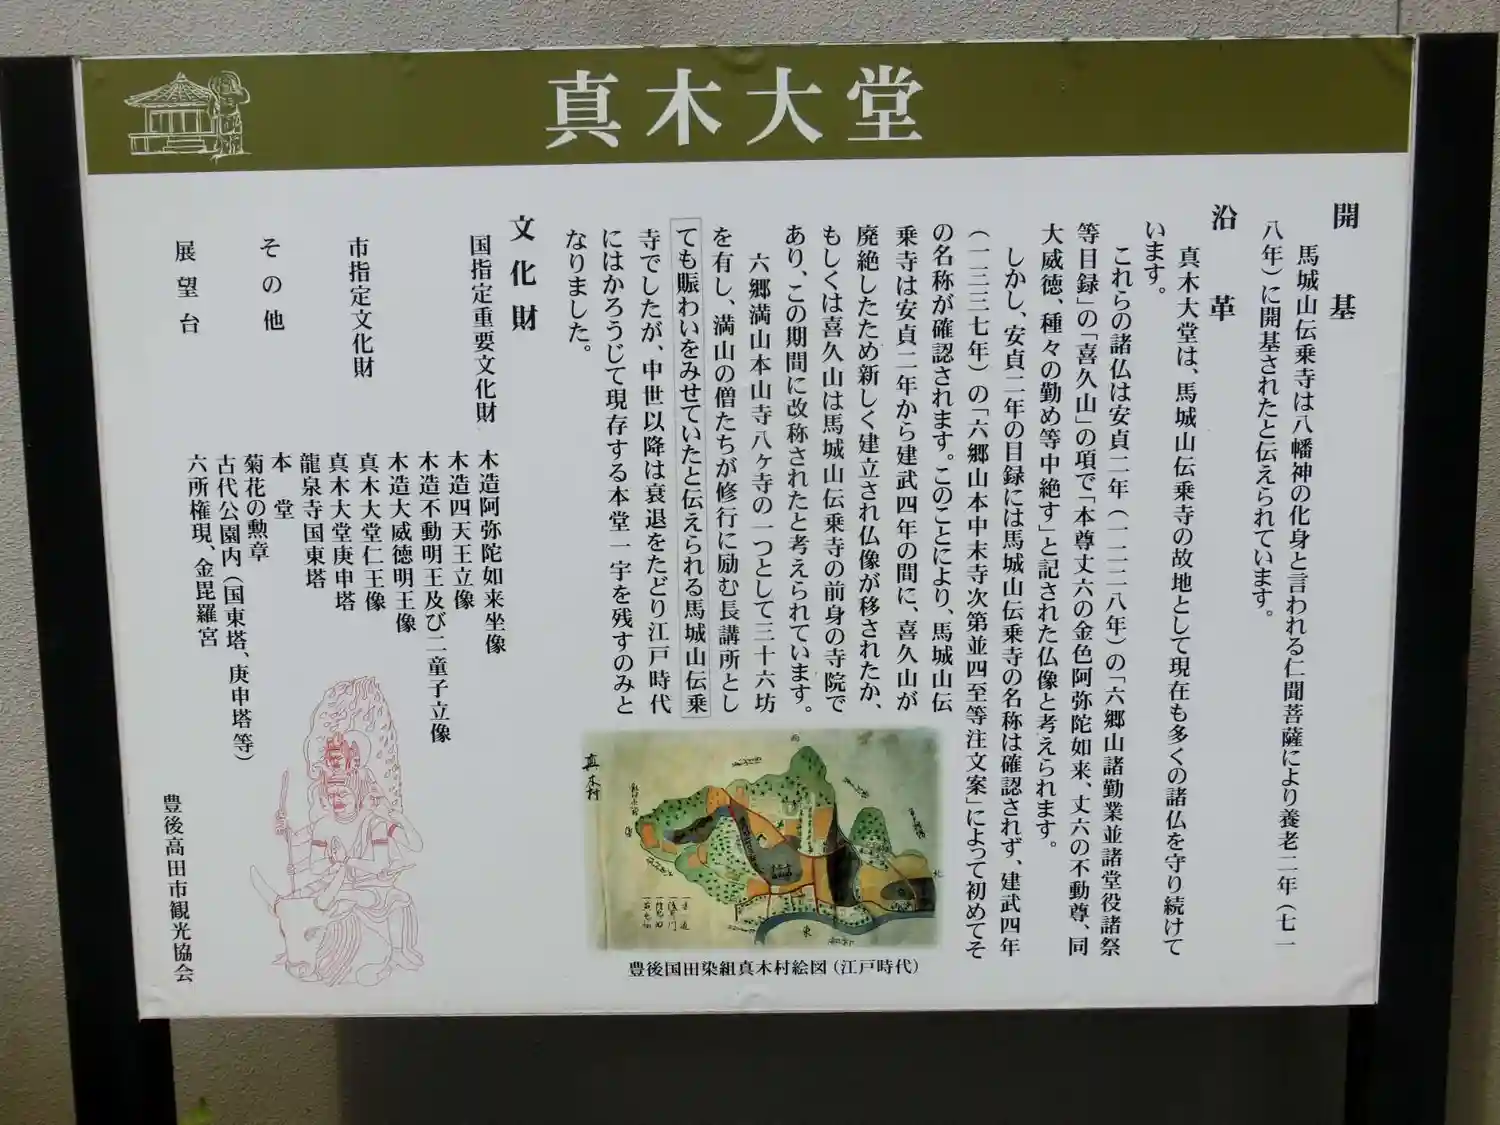 真木大堂
開基
馬城山伝乗寺は八幡神の化身と言われる仁聞菩薩により養老二年（七一
八年）に開基されたと伝えられています。
沿革
真木大堂は、馬城山伝乗寺の故地として現在も多くの諸仏を守り続けて
います。
これらの諸仏は安貞二年（一二二八年）の「六郷山諸勤業並諸堂役諸祭
等目録」の「喜久山」の項で「本尊丈六の金色阿弥陀如来、丈六の不動尊、同
大威徳、種々の勤め等中絶す」と記された仏像と考えられます。
しかし、安貞二年の目録には馬城山伝乗寺の名称は確認されず、建武四年
（一三三七年）の「六郷山本中末寺次第並四至等注文案」によって初めてそ
の名称が確認されます。このことにより、馬城山伝
乗寺は安貞二年から建武四年の間に、喜久山が
廃絶したため新しく建立され仏像が移されたか、
もしくは喜久山は馬城山伝乗寺の前身の寺院で
あり、この期間に改称されたと考えられています。
六郷満山本山寺八ヶ寺の一つとして三十六坊
を有し、満山の僧たちが修行に励む長講所とし
ても賑わいをみせていたと伝えられる馬城山伝乗
寺でしたが、中世以降は衰退をたどり江戸時代
にはかろうじて現存する本堂一宇を残すのみと
なりました。
文化財
国指定重要文化財 木造阿弥陀如来坐像
木造四天王立像
木造不動明王及び二童子立像
木造大威徳明王像
市指定文化財 真木大堂仁王像
真木大堂庚申塔
龍泉寺国東塔
その他 本堂
菊花の勲章
古代公園内（国東塔、庚申塔等）
展望台 六所権現、金毘羅宮
豊後高田市観光協会
真木村
東
豊後国田染組真木村絵図（江戸時代）